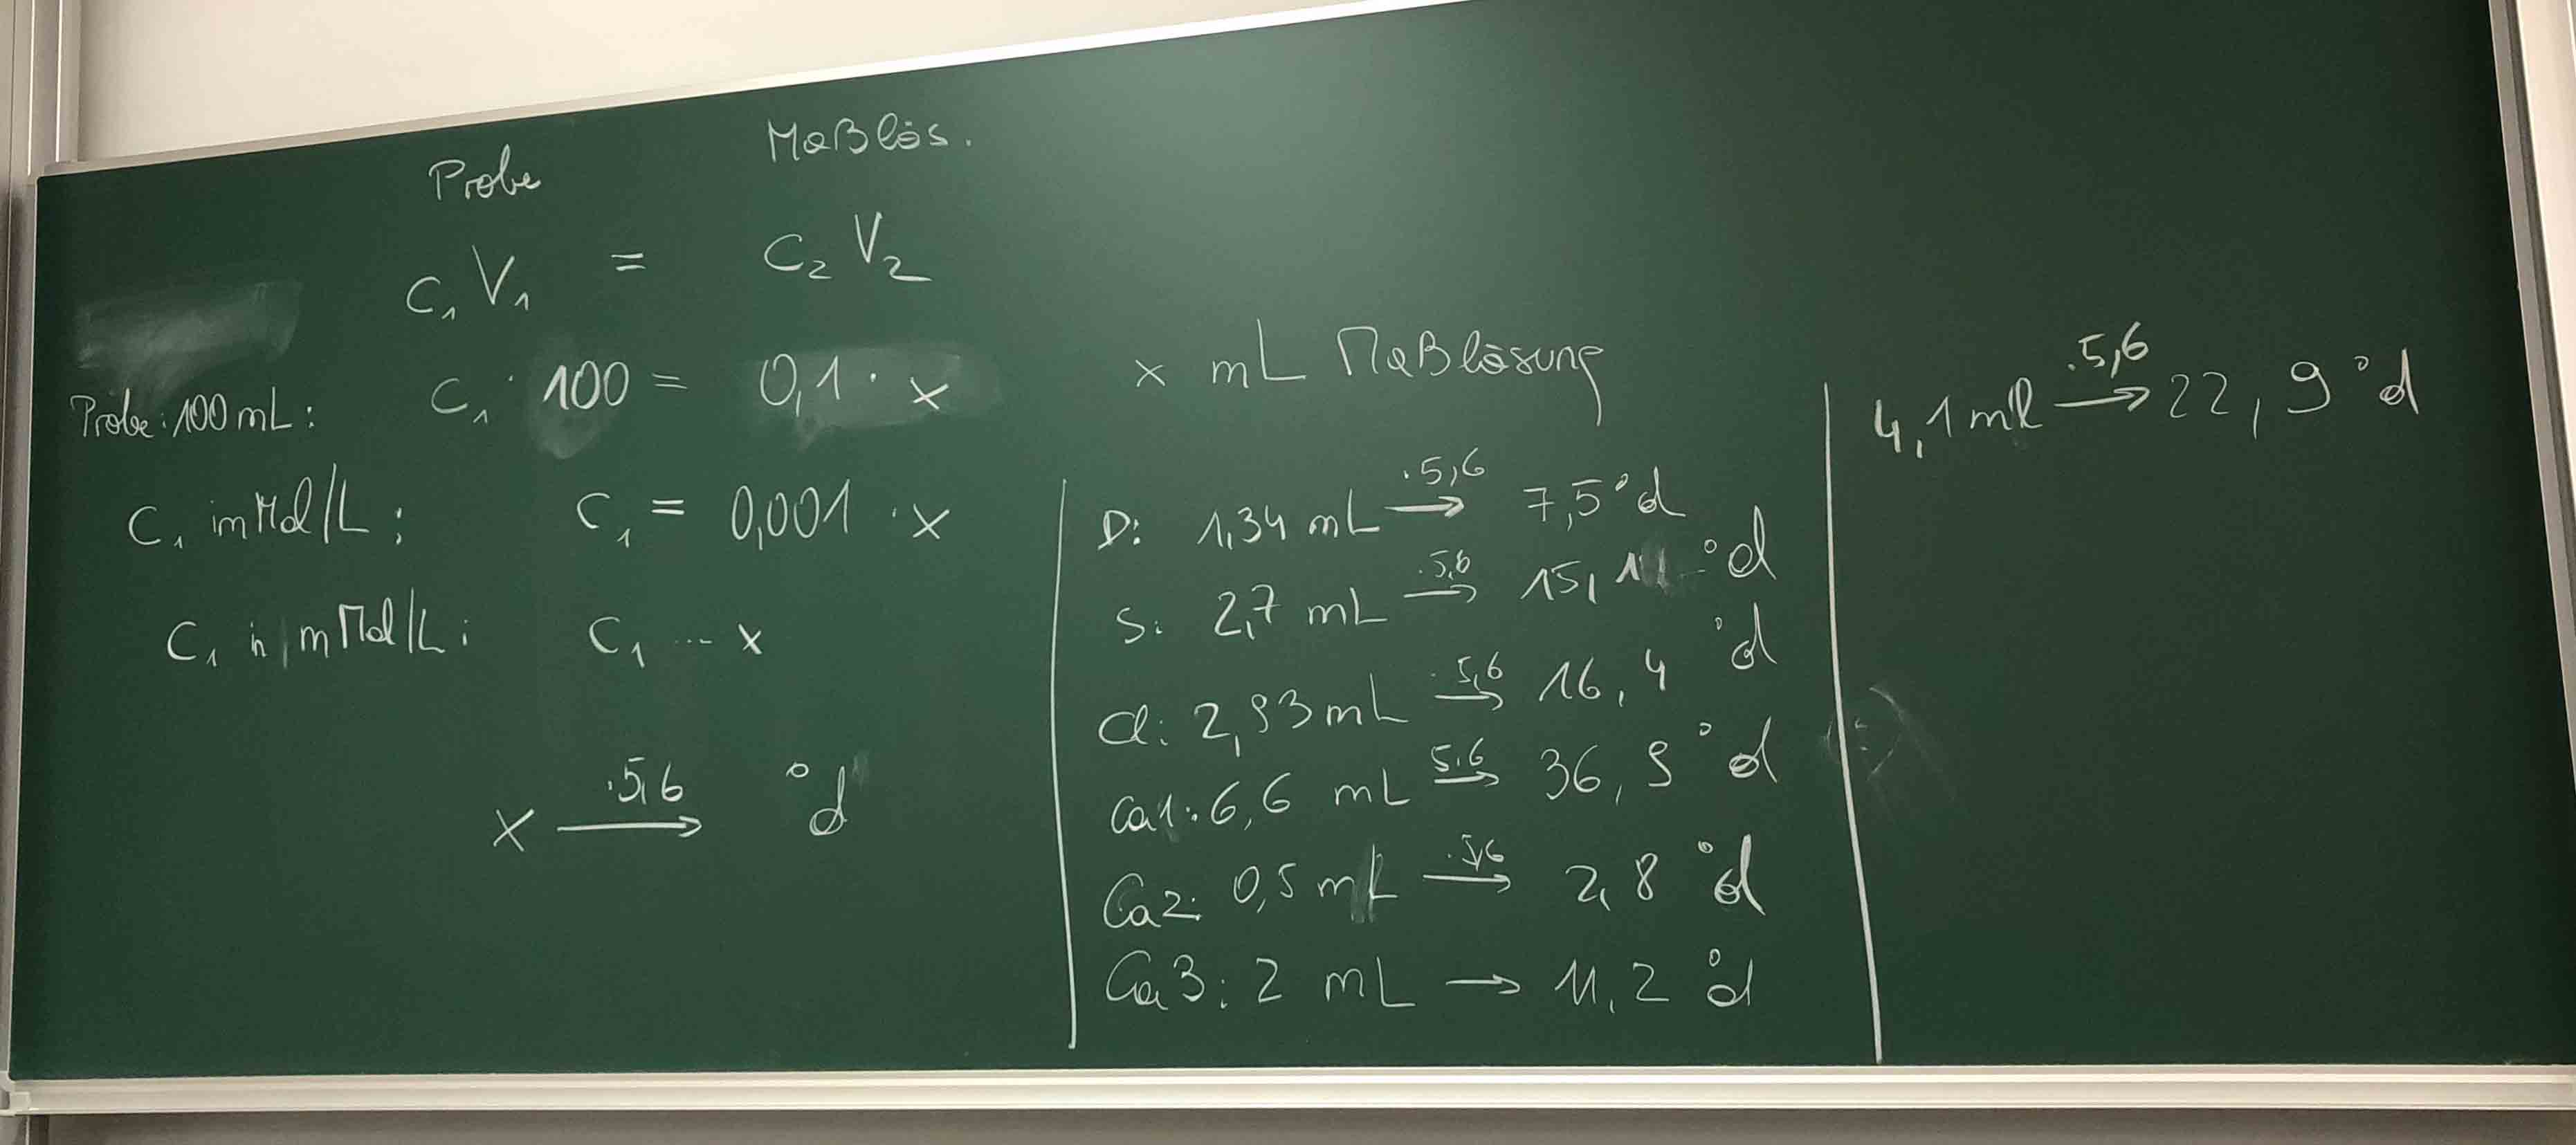 Probe Maßlös.
c₁ V₁ = c₂ V₂
Probe: 100 mL: c₁ · 100 = 0,1 · x
c₁ in Mol/L: c₁ = 0,001 · x
c₁ in mMol/L: c₁ ... x
x —·5,6→ °d
x mL Maßlösung
D: 1,34 mL —·5,6→ 7,5 °d
S: 2,7 mL —·5,6→ 15,1 °d
Cl: 2,93 mL —·5,6→ 16,4 °d
Ca1: 6,6 mL —5,6→ 36,9 °d
Ca2: 0,5 mL —·5,6→ 2,8 °d
Ca3: 2 mL → 11,2 °d
4,1 ml —·5,6→ 22,9 °d